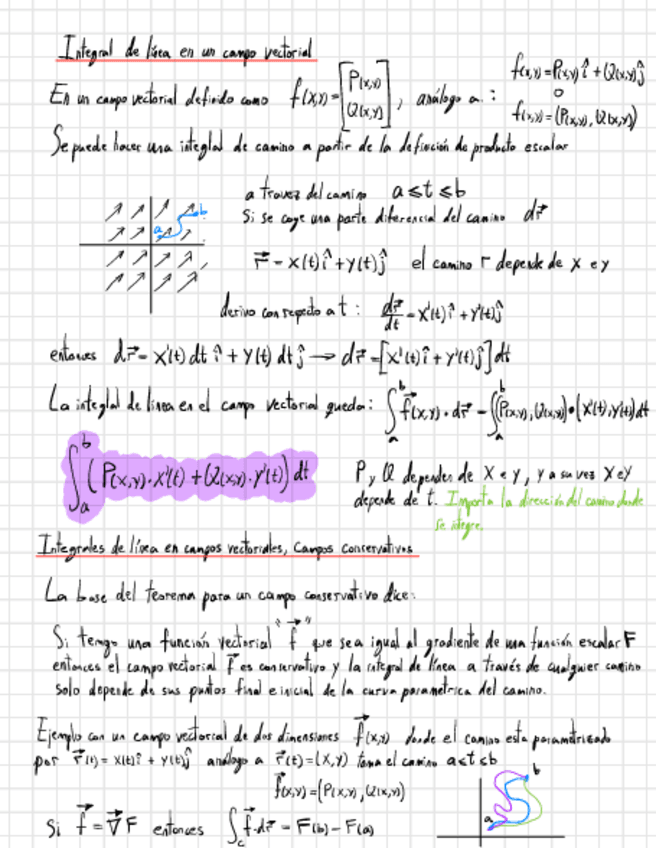 Integral de línea en un campo vectorial
En un campo vectorial definido como f(x,y)=[P(x,y) Q(x,y)], análogo a: f(x,y)=P(x,y)î+Q(x,y)ĵ
o
f(x,y)=(P(x,y),Q(x,y))
Se puede hacer una integral de camino a partir de la definición de producto escalar
a travez del camino a≤t≤b
Si se coge una parte diferencial del camino dr⃗
a b
r⃗=x(t)î+y(t)ĵ el camino r depende de x e y
derivo con respecto a t: dr⃗/dt=x'(t)î+y'(t)ĵ
entonces dr⃗=x'(t)dt î+y(t)dt ĵ→dr⃗=[x'(t)î+y'(t)ĵ]dt
La integral de linea en el campo vectorial queda: ∫ₐᵇ f⃗(x,y)·dr⃗=∫ₐᵇ(P(x,y),Q(x,y))•(x'(t),y'(t))dt
∫ₐᵇ(P(x,y)·x'(t)+Q(x,y)·y'(t))dt
P y Q dependen de x e y, y a su vez x e y
depende de t. Importa la dirección del camino donde
se integre.
Integrales de línea en campos vectoriales, Campos Conservativos
La base del teorema para un campo conservativo dice:
Si tengo una función vectorial "f⃗" que sea igual al gradiente de una función escalar F
entonces el campo vectorial f⃗ es conservativo y la integral de línea a través de cualquier camino
solo depende de sus puntos final e inicial de la curva parametrica del camino.
Ejemplo con un campo vectorial de dos dimensiones f⃗(x,y) donde el camino esta parametrizado
por r⃗(t)=x(t)î+y(t)ĵ análogo a r⃗(t)=(x,y) toma el camino a≤t≤b
f⃗(x,y)=(P(x,y),Q(x,y))
Si f⃗=∇⃗F entonces ∫c f⃗·dr⃗=F(b)-F(a)
a b